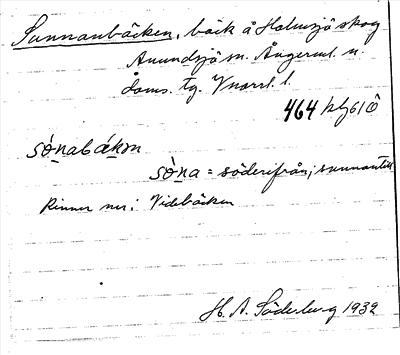 Sunnanbäcken, bäck å Holmsjö skog
Anundsjö sn. Ångerml. n.
doms. tg. Vnorrl. l.
464 blg 61 ö
sònabǽkǝn
sòna = söderifrån; sunnantill
Rinner ner i Videbäcken
H. A. Söderberg 1932